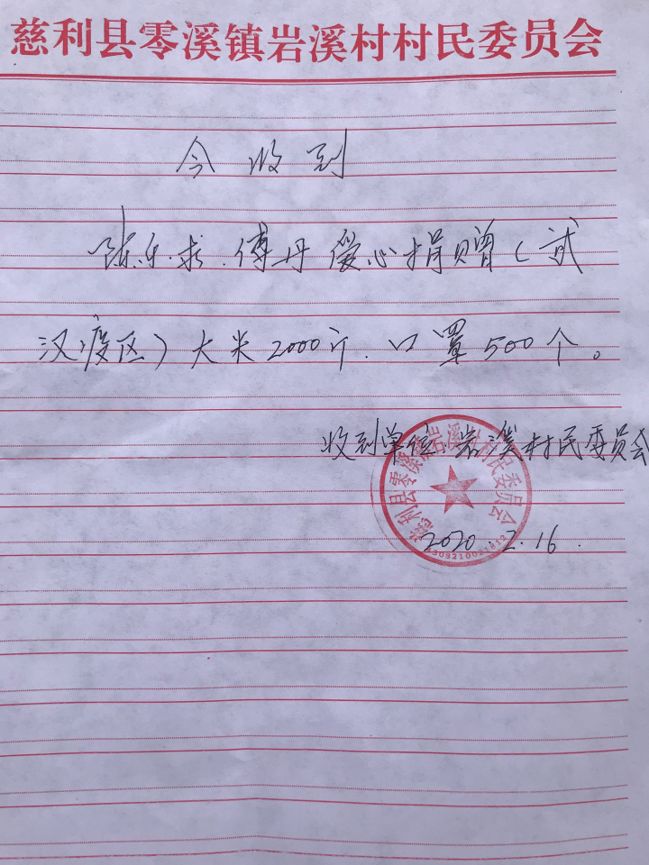 慈利县零溪镇岩溪村村民委员会
今收到
陈乐求.傅丹爱心捐赠(武
汉疫区)大米2000斤.口罩500个。
收到单位 岩溪村民委员会
慈利县零溪镇岩溪村村民委员会
2020.2.16.